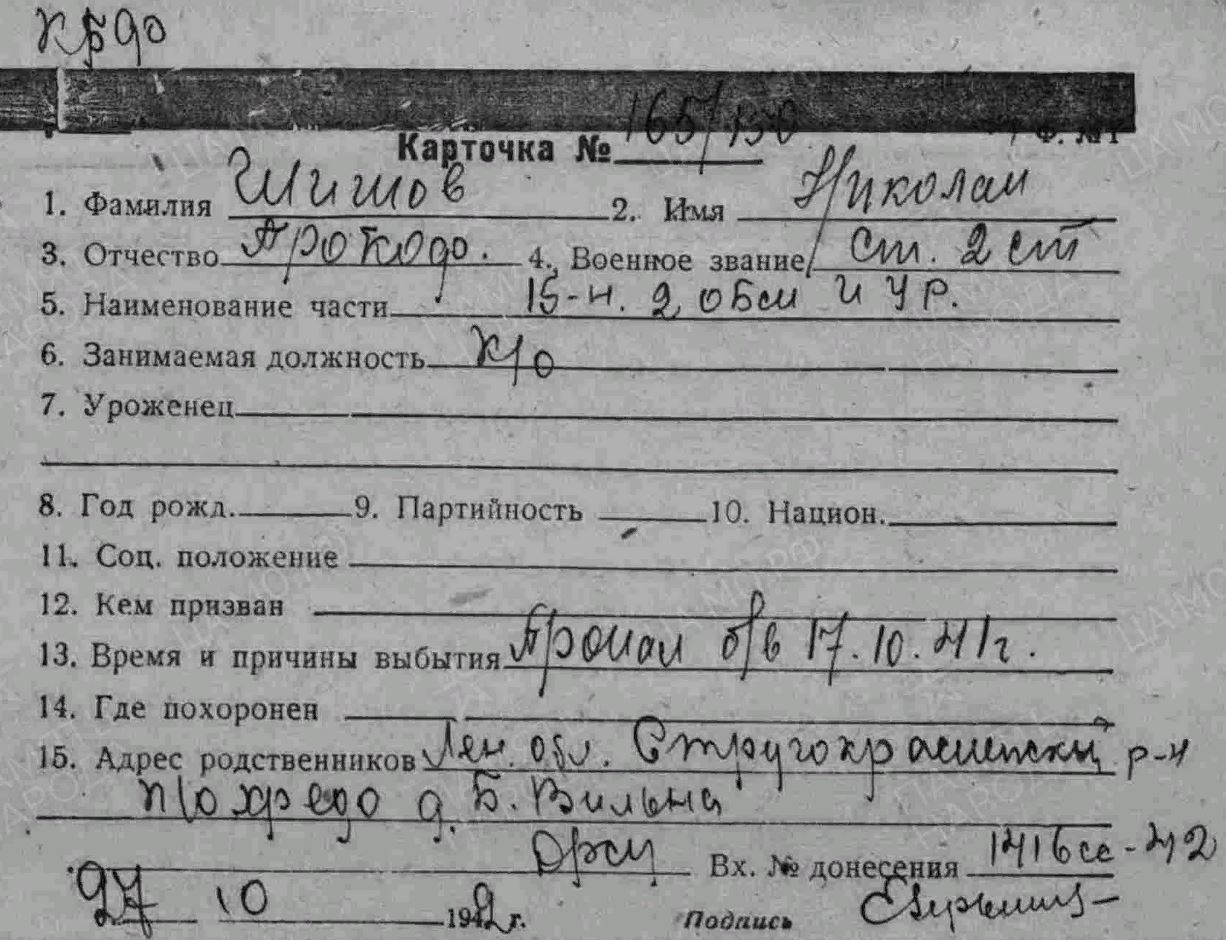 КБФ
Ф. №1
Карточка № 165/130
1. Фамилия Шишов 2. Имя Николай
3. Отчество Прокофо. 4. Военное звание Ст. 2 ст
5. Наименование части 2 обм и УР.
6. Занимаемая должность к/о
7. Уроженец
8. Год рожд. 9. Партийность 10. Национ.
11. Соц. положение
12. Кем призван
13. Время и причины выбытия Пропал б/в 17.10.41г.
14. Где похоронен
15. Адрес родственников Лен. обл. Стругокрасненский р-н
п/о д. Б. Вильна
Вх. № донесения 1416сс-42
27 10 1942г. Подпись